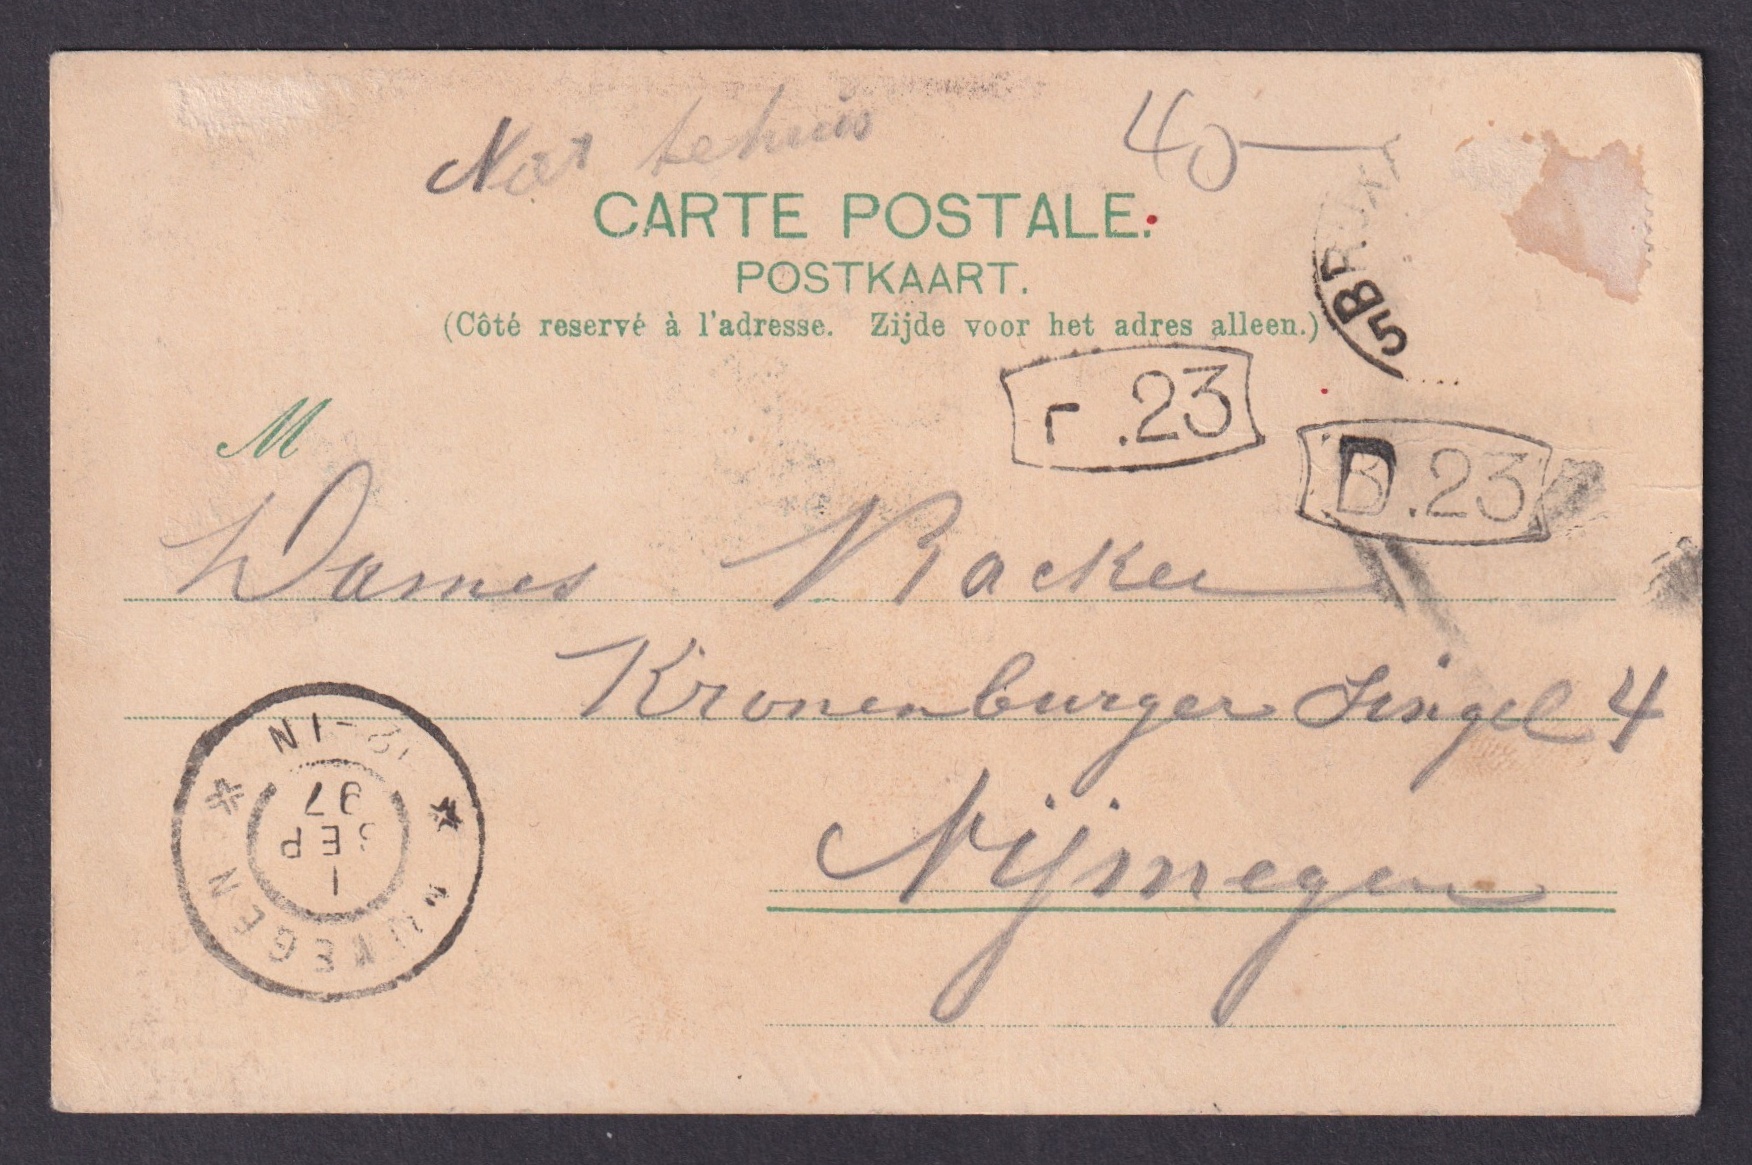 Nat tehuis 40
CARTE POSTALE.
POSTKAART.
(Côté reservé à l'adresse. Zijde voor het adres alleen.)
5 BRUX
r .23
B.23
M
Dames Backer
Kronenburger Singel 4
Nijmegen
12-1N
97
SEP
1
NIJMEGEN